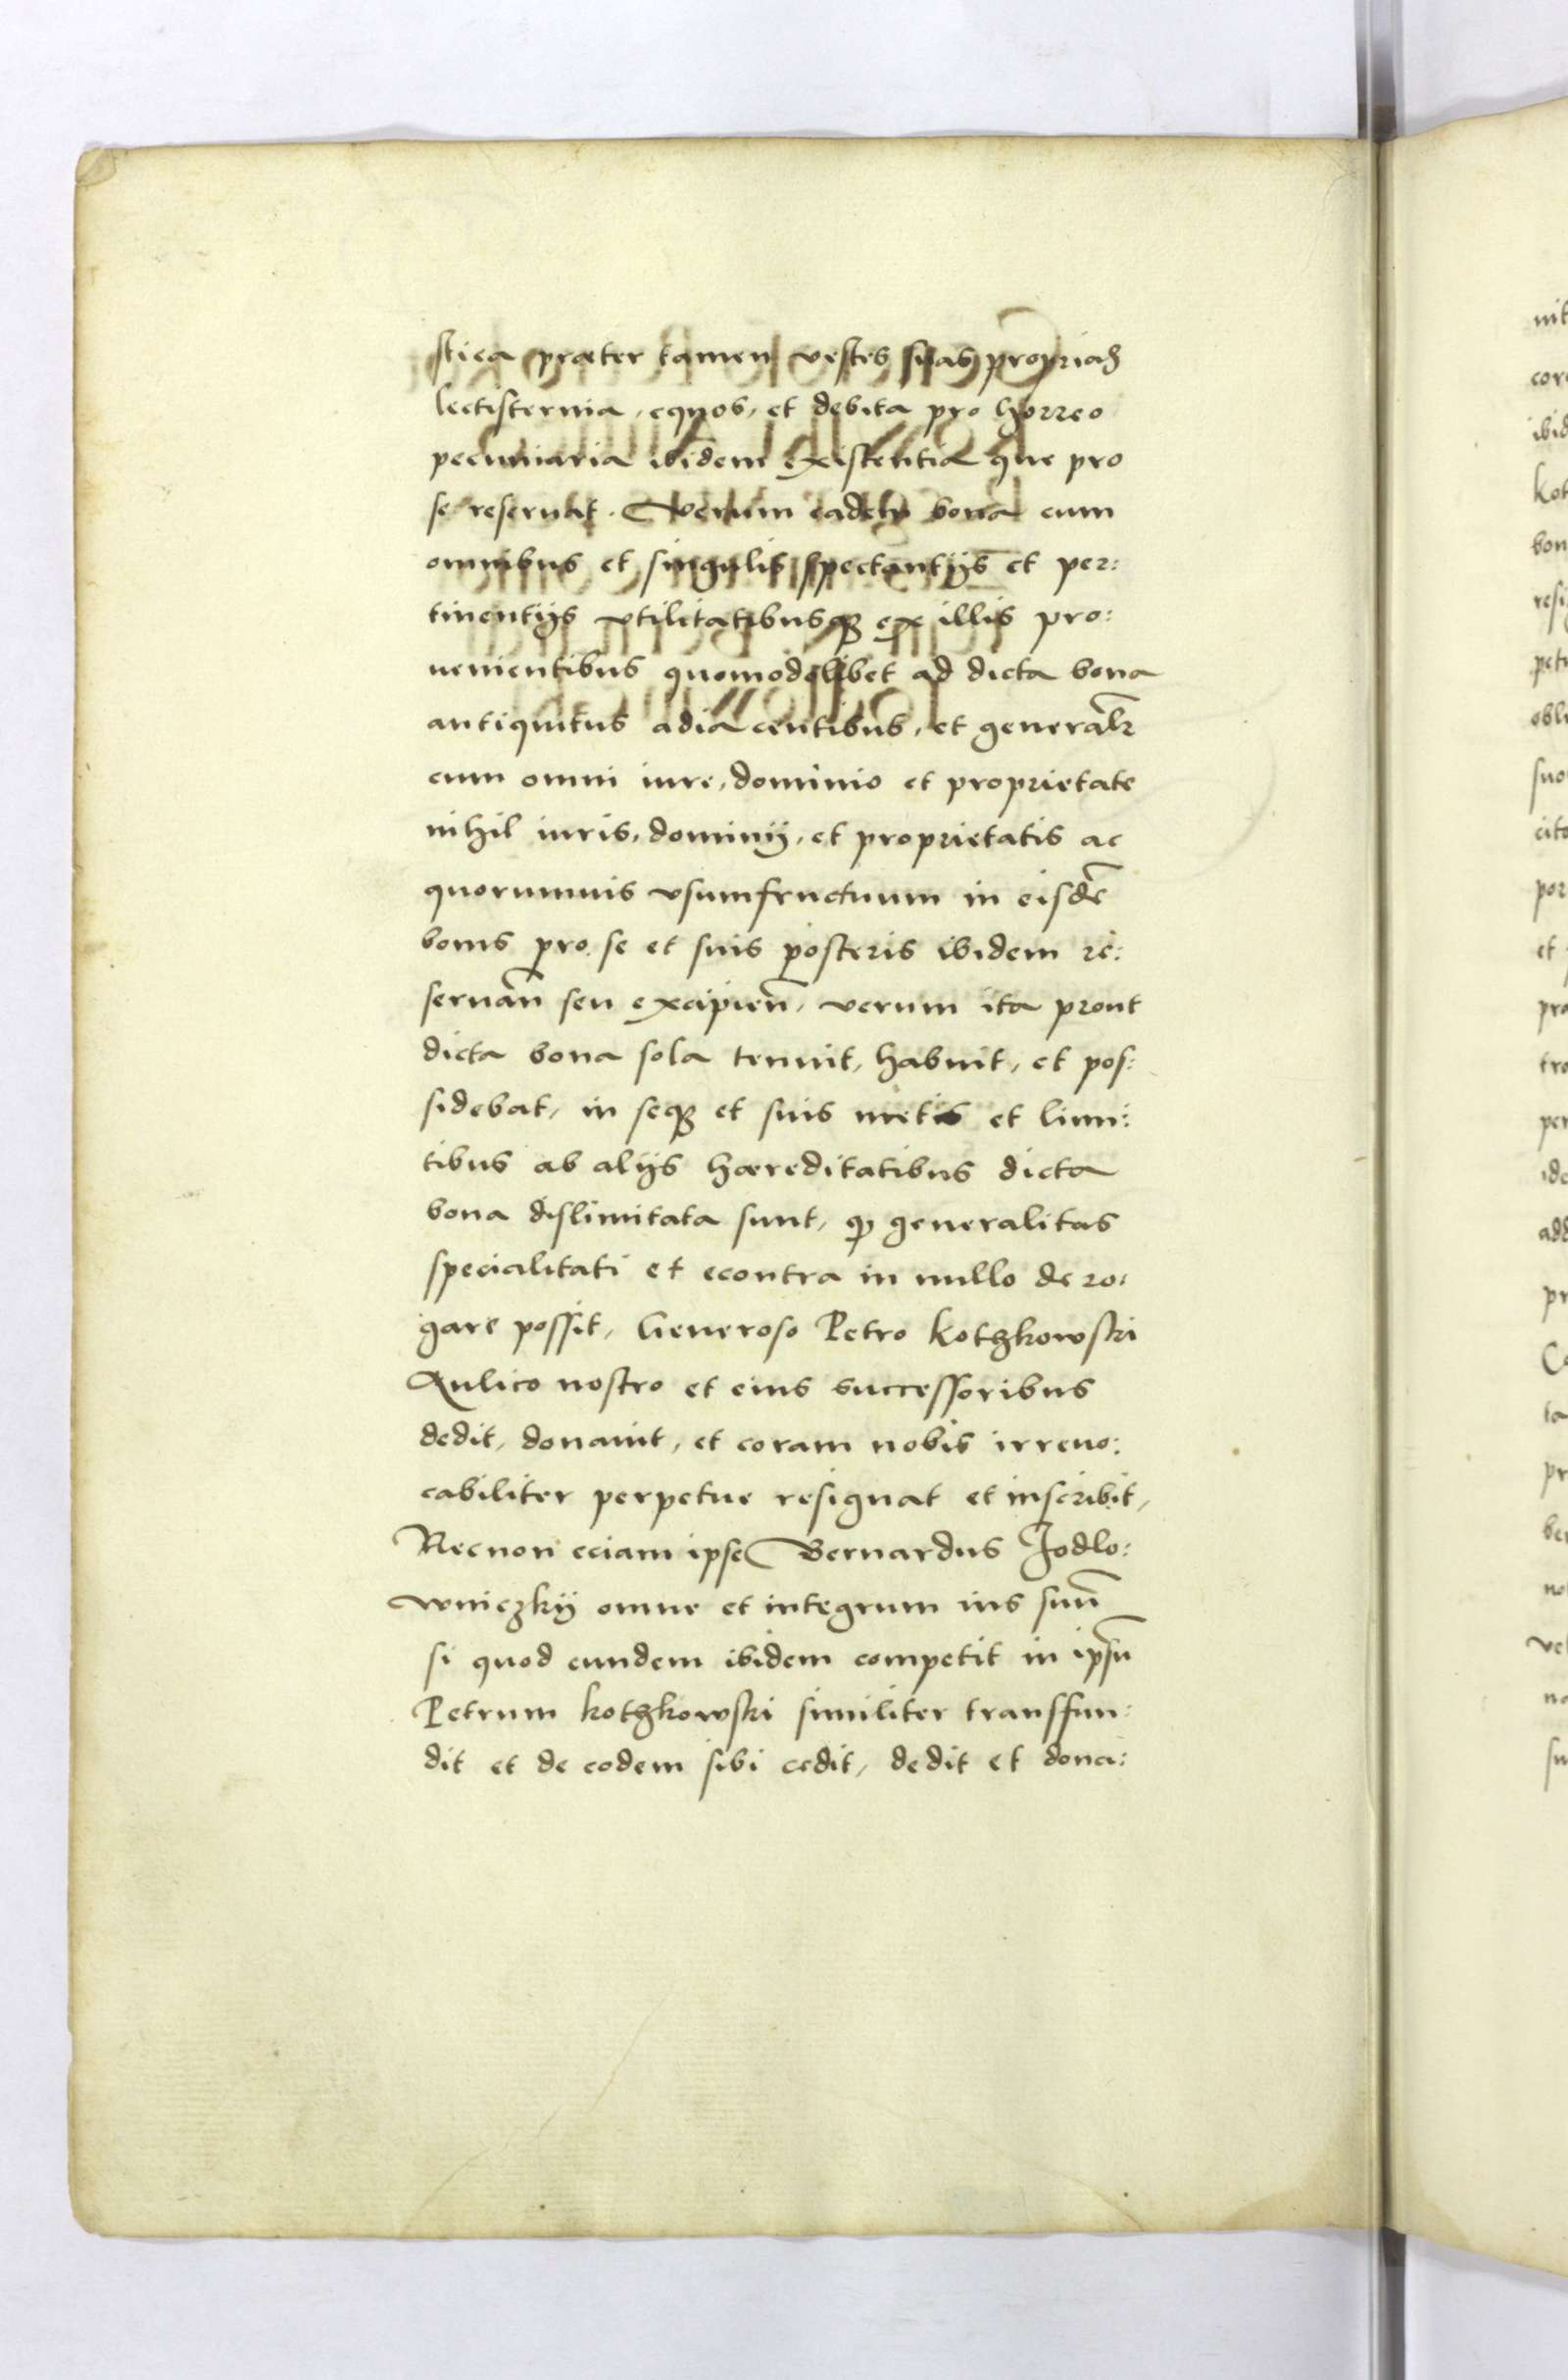 stica præter tamen vestes suas proprias
lectisternia, equos, et debita pro horreo
pecuniaria ibidem existentia que pro
se reseruat. Verum eadem bona cum
omnibus et singulis spectantijs et per:
tinentijs vtilitatibusqꝫ ex illis pro:
uenientibus quomodolibet ad dicta bona
antiquitus adiacentibus, et generalr
cum omni iure, dominio et proprietate
nihil iuris, dominij, et proprietatis ac
quorumuis vsumfructuum in eisdē
bonis pro se et suis posteris ibidem re:
seruan̄ seu excipien̄, verum ita prout
dicta bona sola tenuit, habuit, et pos:
sidebat, in seqꝫ et suis metis et limi:
tibus ab alijs hæreditatibus dicta
bona dislimitata sunt, qꝫ generalitas
specialitati et econtra in nullo dero:
gare possit, Generoso Petro Kotzkowski
Aulico nostro et eius successoribus
dedit, donauit, et coram nobis irreuo:
cabiliter perpetue resignat et inscribit,
Necnon eciam ipse Bernardus Jodlo:
wniczkij omne et integrum ius suū
si quod eundem ibidem competit in ipsū
Petrum Kotzkowski similiter transfun:
dit et de eodem sibi cedit, dedit et dona: